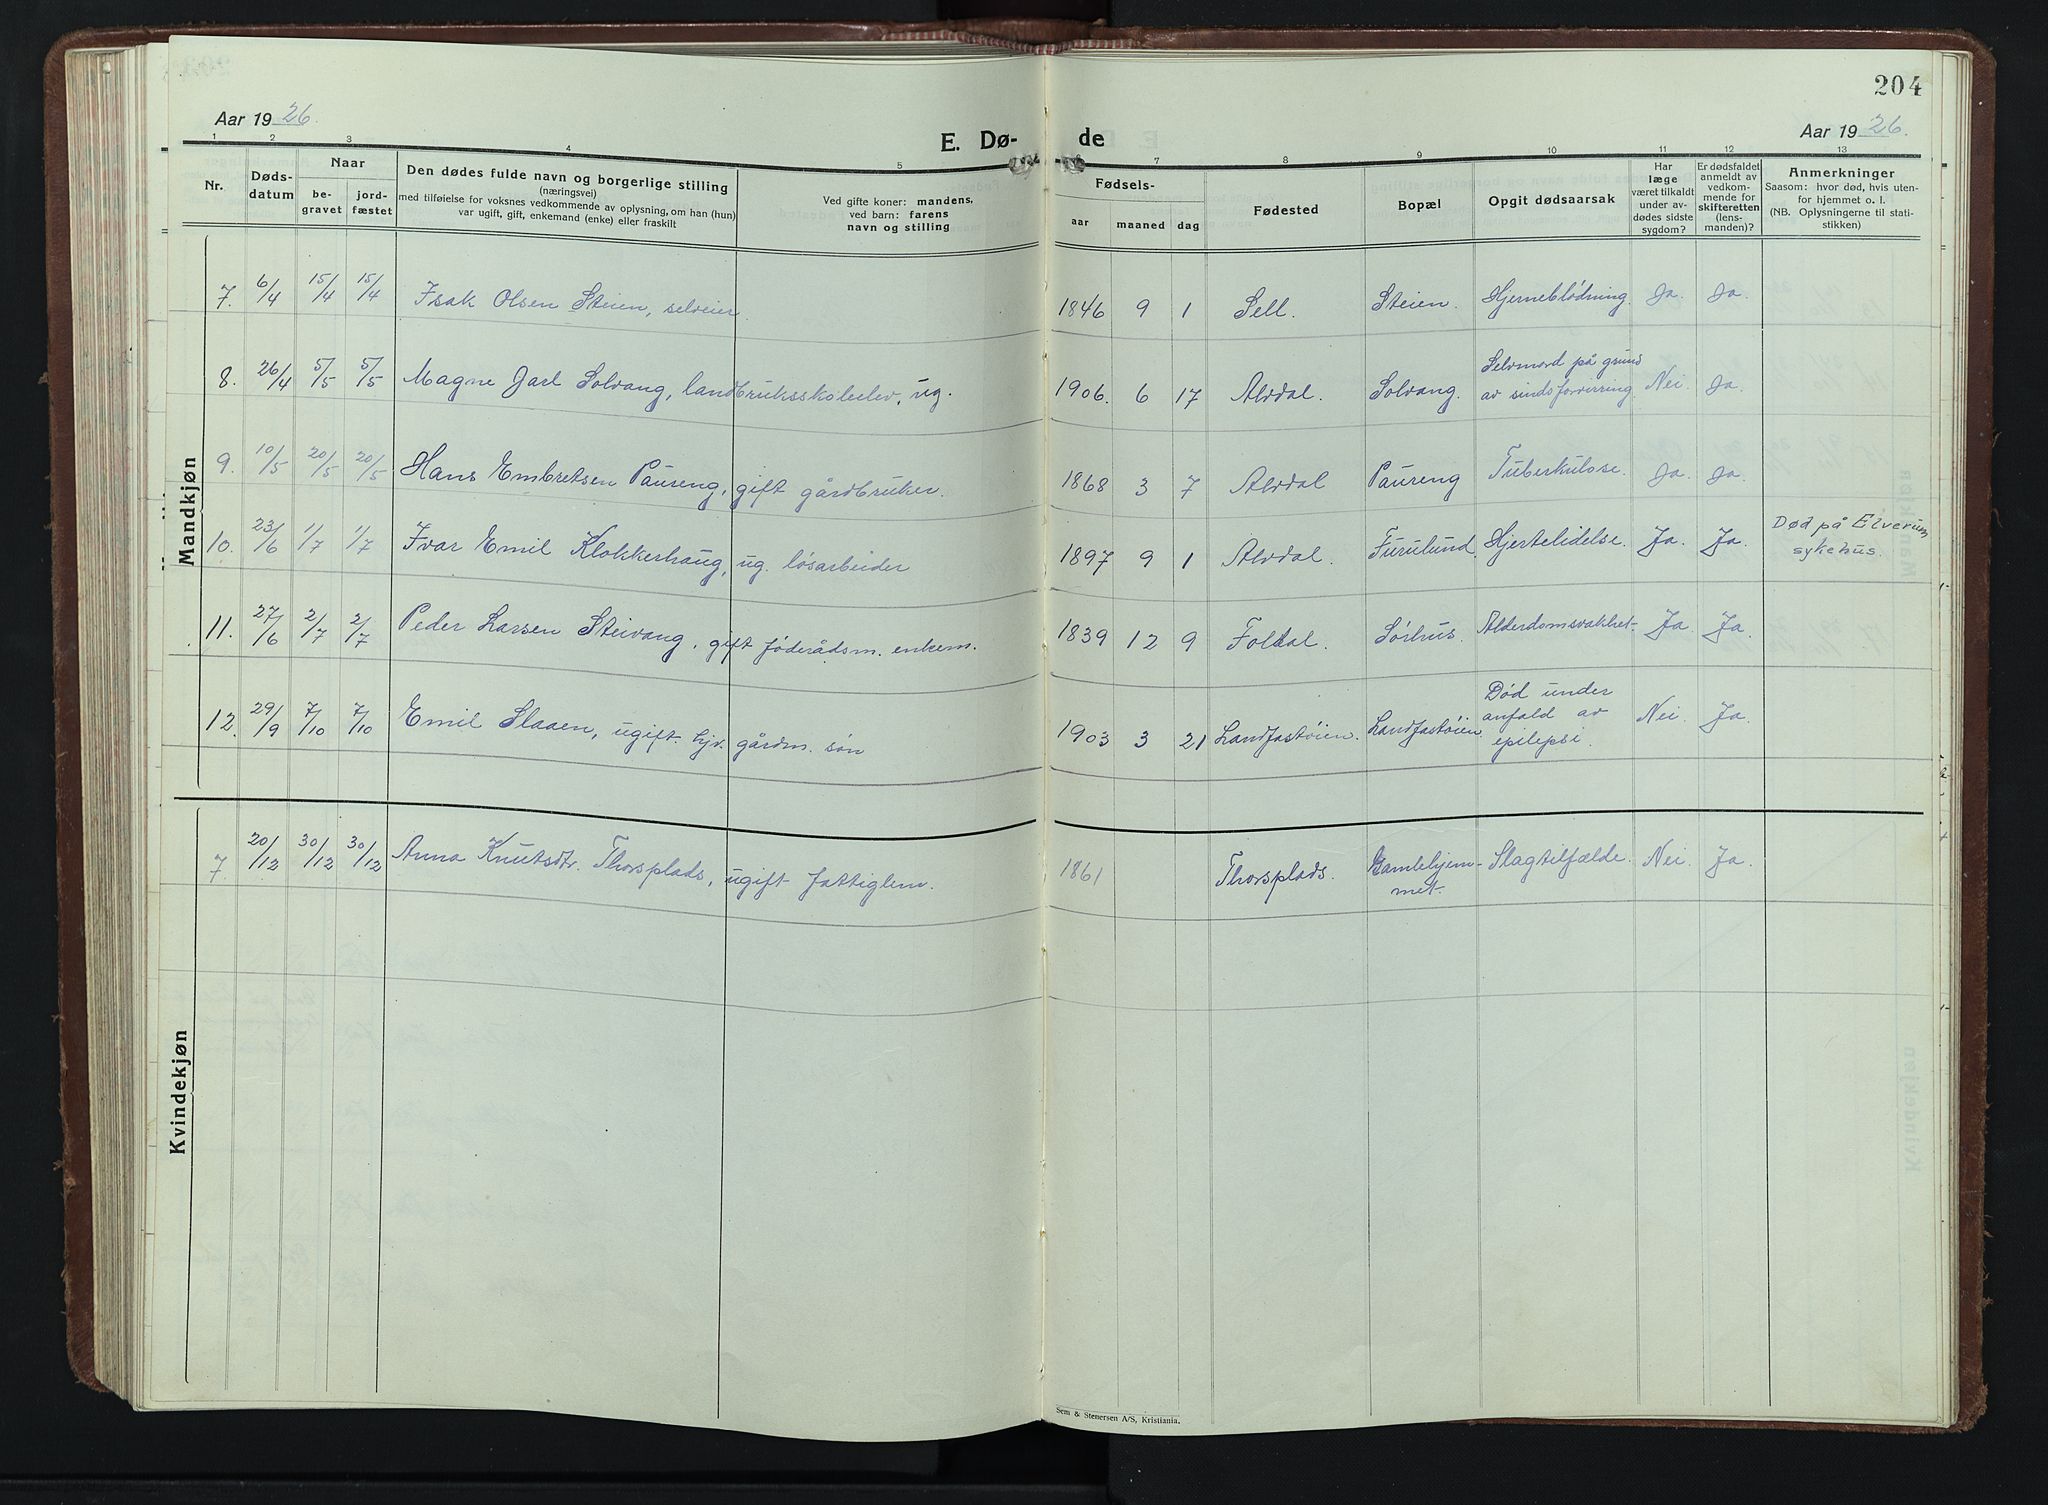 204
Aar 1926.
E. Dø- de
Aar 1926.
1 2 3 4 5 6 7 8 9 10 11 12 13
Nr.
Døds-
datum
Naar
be-
gravet
jord-
fæstet
Den dødes fulde navn og borgerlige stilling
(næringsvei)
med tilføielse for voksnes vedkommende av oplysning, om han (hun)
var ugift, gift, enkemand (enke) eller fraskilt
Ved gifte koner: mandens,
ved barn: farens
navn og stilling
Fødsels-
aar
maaned
dag
Fødested
Bopæl
Opgit dødsaarsak
Har
læge
været tilkaldt
under av-
dødes sidste
sygdom?
Er dødsfaldet
anmeldt av
vedkom-
mende for
skifteretten
(lens-
manden)?
Anmerkninger
Saasom: hvor død, hvis uten-
for hjemmet o. l.
(NB. Oplysningerne til stati-
stikken)
Mandkjøn
7. 6/4 15/4 15/4 Isak Olsen Steien, selveier. 1846 9 1 Sell. Steien. Hjerneblødning. Ja. Ja.
8. 26/4 5/5 5/5 Magne Jarl Solvang, landbruksskoleelev, ug. 1906. 6 17 Alvdal. Solvang. Selvmord på grund
av sindsforvirring. Nei. Ja.
9. 10/5 20/5 20/5 Hans Embretsen Paureng, gift gårdbruker. 1868 3 7 Alvdal Paureng Tuberkulose. Ja. Ja.
10. 23/6 1/7 1/7 Ivar Emil Klokkerhaug, ug. løsarbeider 1897 9 1 Alvdal. Furulund. Hjertelidelse. Ja. Ja. Død på Elverum
sykehus.
11. 27/6 2/7 2/7 Peder Larsen Steivang, gift føderådsm. enkem. 1839 12 9 Foldal. Sørhus. Alderdomsvakhet. Ja. Ja.
12. 29/9 7/10 7/10 Emil Slaaen, ugift. hjv. gårdm. søn 1903 3 21 Landfastøien. Landfastøien. Død under
anfald av
epilepsi. Nei. Ja.
Kvindekjøn
7. 20/12 30/12 30/12 Anna Knutsdtr. Thorsplads, ugift fattiglem. 1861 Thorsplads. Gamlehjem-
met. Slagtilfælde. Nei. Ja.
Sem & Stenersen A/S, Kristiania.